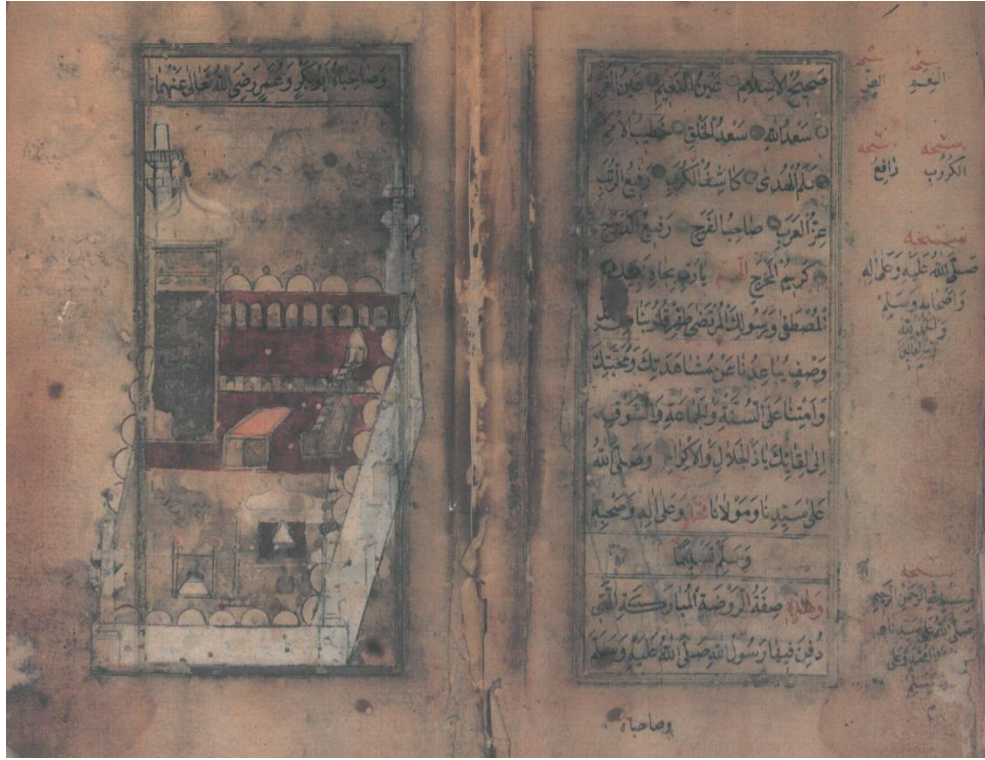 صَحِيحُ الْاِسْلَامِ عَيْنُ النَّعِيمِ عَيْنُ الْغُرِّ
سَعْدُ اللهِ سَعْدُ الْخَلْقِ خَطِيبُ الْاُمَمِ
عَلَمُ الْهُدٰى كَاشِفُ الْكُرَبِ رَفِيعُ الرُّتَبِ
عِزُّ الْعَرَبِ صَاحِبُ الْفَرَجِ رَفِيعُ الدَّرَجِ
كَرِيمُ الْمَخْرَجِ اللهم يَارَبِّ بِجَاهِ نَبِيِّكَ
الْمُصْطَفٰى وَرَسُولِكَ الْمُرْتَضٰى طَهِّرْ قُلُوبَنَا مِنْ كُلِّ
وَصْفٍ يُبَاعِدُنَا عَنْ مُشَاهَدَتِكَ وَمَحَبَّتِكَ
وَاَمِتْنَا عَلَى السُّنَّةِ وَالْجَمَاعَةِ وَالشَّوْقِ
اِلٰى لِقَائِكَ يَاذَا الْجَلَالِ وَالْاِكْرَامِ وَصَلَّى اللهُ
عَلٰى سَيِّدِنَا وَمَوْلَانَا محمد وَعَلٰى اٰلِهِ وَصَحْبِهِ
وَسَلَّمَ تَسْلِيمًا
وَهٰذِهِ صِفَةُ الرَّوْضَةِ الْمُبَارَكَةِ الَّتِي
دُفِنَ فِيهَا رَسُولُ اللهِ صَلَّى اللهُ عَلَيْهِ وَسَلَّمَ
وصاحباه
نسخه نسخه
النعيم الغر
نسخه نسخه
الكروب رافع
نسخه
صَلَّى اللهُ عَلَيْهِ وَعَلٰى اٰلِهِ
وَاَصْحَابِهِ وَسَلَّمَ
والحمد لله
نسخه
بسم الله الرحمن الرحيم
صلى الله على سيدنا
وَصَاحِبَاهُ اَبُو بَكْرٍ وَعُمَرَ رَضِيَ اللهُ تَعَالٰى عَنْهُمَا